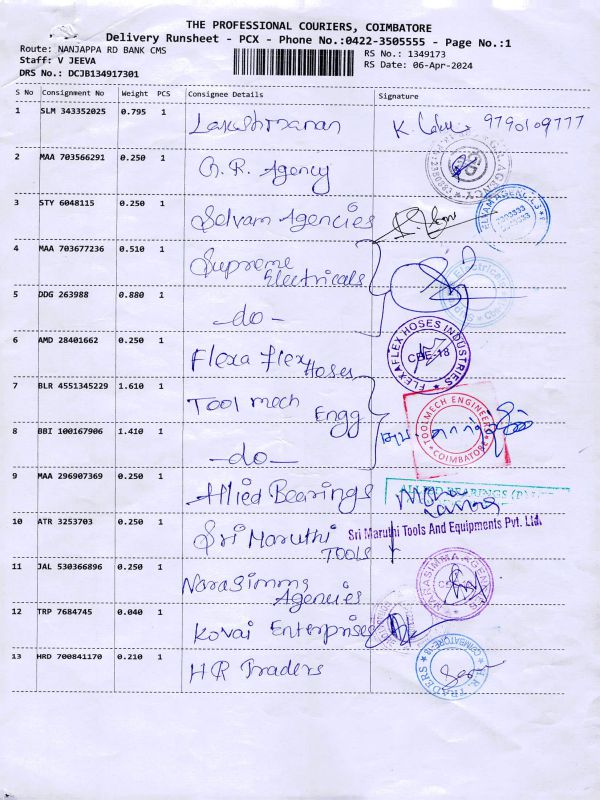 THE PROFESSIONAL COURIERS, COIMBATORE
Delivery Runsheet - PCX - Phone No.:0422-3505555 - Page No.:1
Route: NANJAPPA RD BANK CMS
RS No.: 1349173
Staff: V JEEVA
RS Date: 06-Apr-2024
DRS No.: DCJB134917301
S No Consignment No Weight PCS Consignee Details Signature
1 SLM 343352025 0.795 1 Lakshmanan K. 9790109777
2 MAA 703566291 0.250 1 G.R. Agency
3 STY 6048115 0.250 1 Selvam Agencies
4 MAA 703677236 0.510 1 Supreme Electricals
5 DDG 263988 0.880 1 -do-
6 AMD 28401662 0.250 1 Flexa flex Hoses
FLEXAFLEX HOSES INDUSTRIES
CBE-18
7 BLR 4551345229 1.610 1 Tool mech Engg
TOOLMECH ENGINEERS
COIMBATORE
8 BBI 100167906 1.410 1 -do-
9 MAA 296907369 0.250 1 Allied Bearings
10 ATR 3253703 0.250 1 Sri Maruthi TOOLS
Sri Maruthi Tools And Equipments Pvt. Ltd.
11 JAL 530366896 0.250 1 Narasimma Agencies
NARASIMMA AGENCIES
12 TRP 7684745 0.040 1 Kovai Enterprises
13 HRD 700841170 0.210 1 HR Traders
H.R. TRADERS
COIMBATORE-18